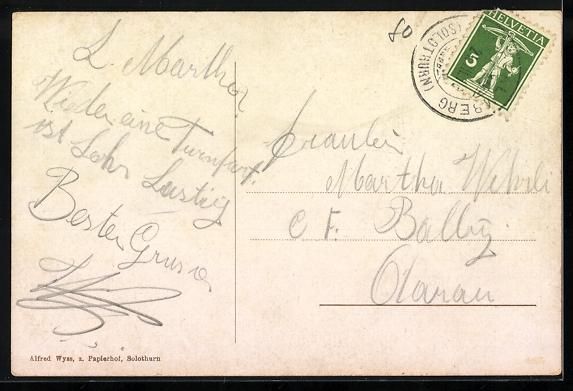 80
HELVETIA
5
BERG (SOLOTHURN)
L. Martha
Wieder eine Turnfart
ist Sehr Lustig
Besten Gruss
Fräulein
Martha Wehrli
C F. Bally
Aarau
Alfred Wyss, z. Papierhof, Solothurn